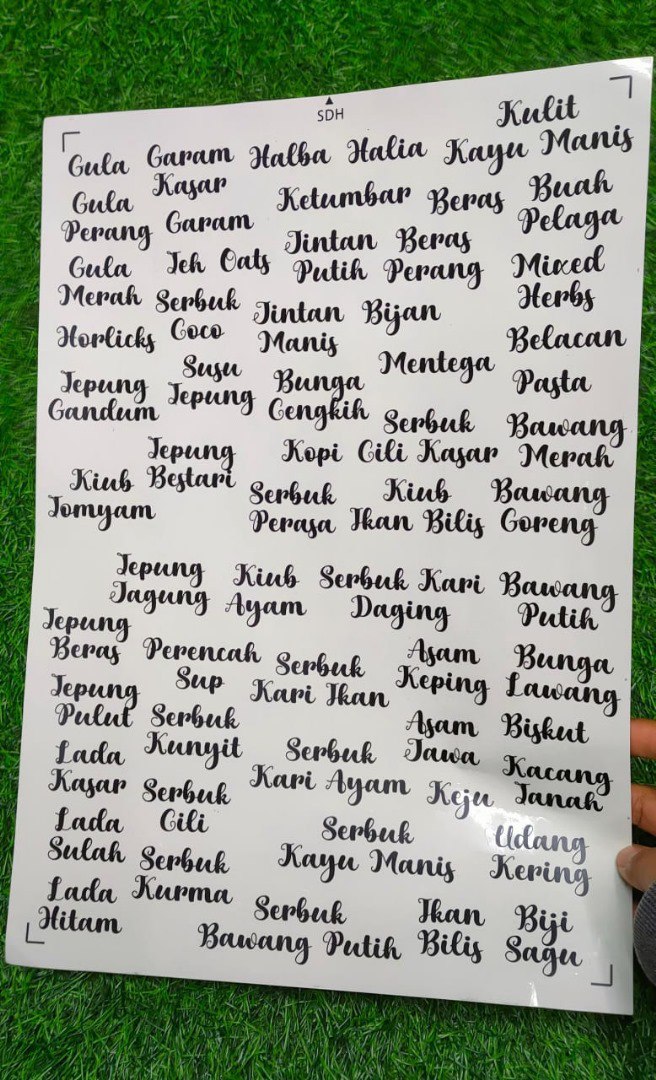 SDH
Gula
Garam
Halba
Halia
Kulit
Kayu Manis
Gula
Perang
Kasar
Garam
Ketumbar
Beras
Buah
Pelaga
Gula
Merah
Teh
Oats
Jintan
Putih
Beras
Perang
Mixed
Herbs
Horlicks
Serbuk
Coco
Jintan
Manis
Bijan
Belacan
Tepung
Gandum
Susu
Tepung
Bunga
Cengkih
Mentega
Pasta
Kiub
Tomyam
Tepung
Bestari
Kopi
Serbuk
Cili Kasar
Bawang
Merah
Serbuk
Perasa
Kiub
Ikan Bilis
Bawang
Goreng
Tepung
Jagung
Kiub
Ayam
Serbuk Kari
Daging
Bawang
Putih
Tepung
Beras
Perencah
Sup
Serbuk
Kari Ikan
Asam
Keping
Bunga
Lawang
Tepung
Pulut
Serbuk
Kunyit
Serbuk
Kari Ayam
Asam
Jawa
Biskut
Lada
Kasar
Serbuk
Cili
Keju
Kacang
Tanah
Lada
Sulah
Serbuk
Kurma
Serbuk
Kayu Manis
Udang
Kering
Lada
Hitam
Serbuk
Bawang Putih
Ikan
Bilis
Biji
Sagu